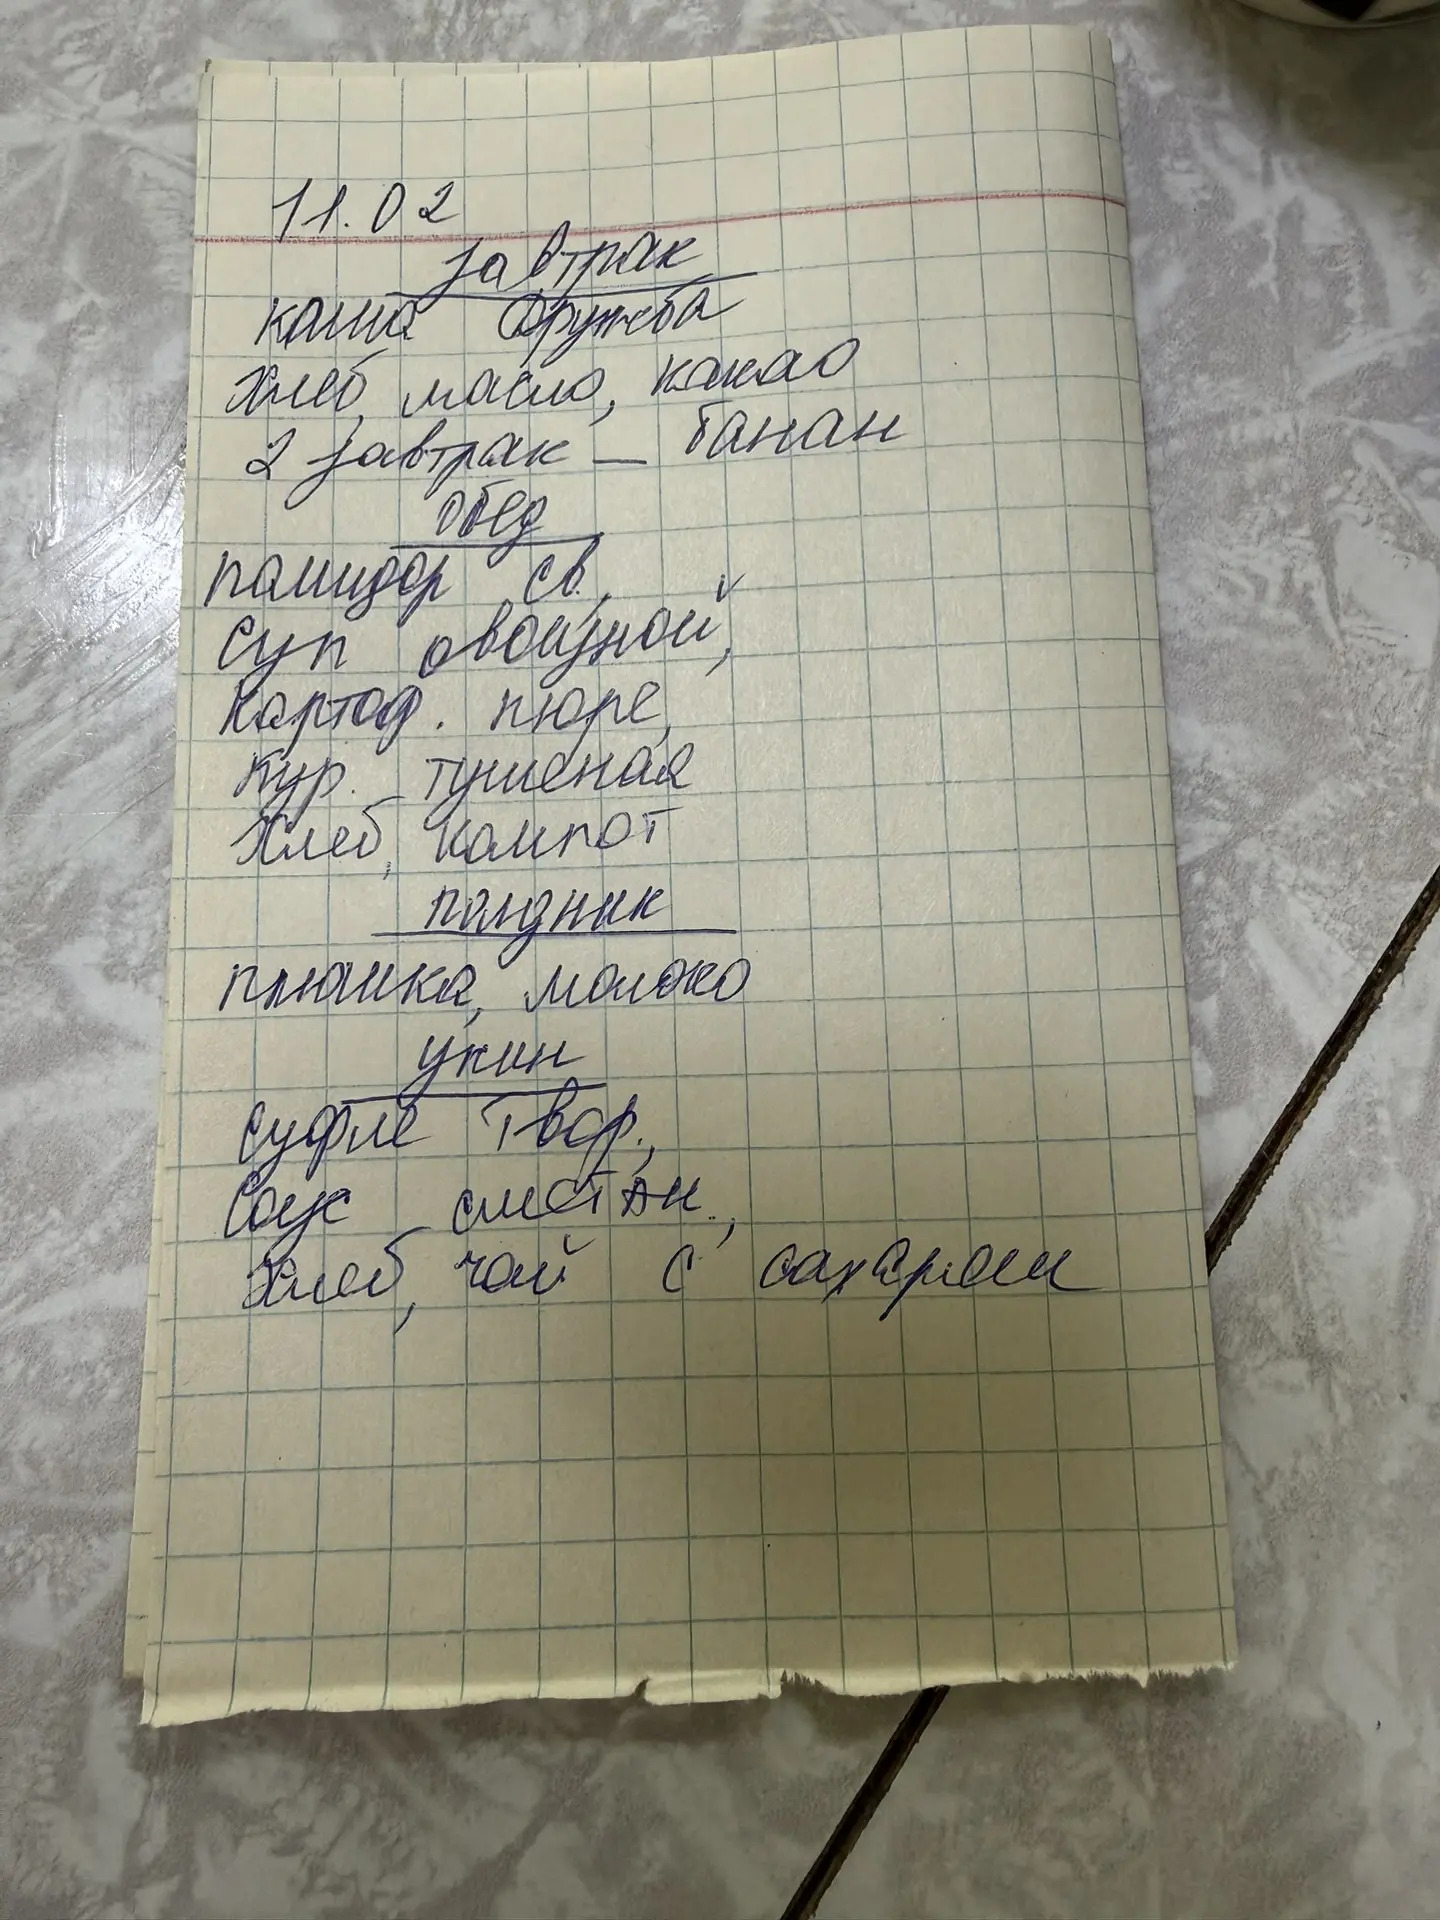 11.02
завтрак
каша дружба
хлеб, масло, какао
2 завтрак – банан
обед
помидор св.,
суп овощной,
картоф. пюре,
кур. тушеная
хлеб, компот
полдник
плюшка, молоко
ужин
суфле твор.,
соус сметан.,
хлеб, чай с сахаром